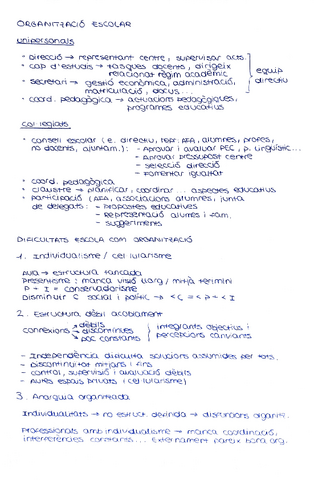 ORGANITZACIÓ ESCOLAR
unipersonals
• Direcció → representant centre, supervisar acts.
• cap d'estudis → tasques docents, dirigeix
relacionat règim acadèmic
equip
directiu
• secretari → gestió econòmica, administració,
matriculació, docus...
• coord. pedagògica → actuacions pedagògiques,
programes educatius
col·legiats
• consell escolar (e. directiu, repr. AFA, alumnes, profes,
no docents, ajuntam.): - Aprovar i avaluar PEC, p. lingüístic...
- Aprovar pressupost centre
- selecció direcció
- Fomentar igualtat
• coord. pedagògica
• claustre → planificar, coordinar... aspectes educatius
• participació (AFA, associacions alumnes, junta
de delegats: - Propostes educatives
- Representació alumnes i fam.
- suggeriments
DIFICULTATS ESCOLA COM ORGANITZACIÓ
1. Individualisme / cel·lularisme
Aula → estructura tancada
Presentisme: manca visió llarg / mitjà termini
P + I = conservadorisme
Disminuir C social i polític → <C = <P + <I
2. Estructura dèbil acoblament
connexions → dèbils
→ discontínues
→ poc constants
integrants objectius i
percepcions canviants
- Independència dificulta solucions assumides per tots.
- Discontinuïtat mitjans i fins
- control, supervisió i avaluació dèbils
- Autès espais privats (cel·lularisme)
3. Anarquia organitzada
Individualitats → no estruct. definida → disfuncions organit.
Professionals amb individualisme → manca coordinació,
interferències constants... Externament pareix bona org.